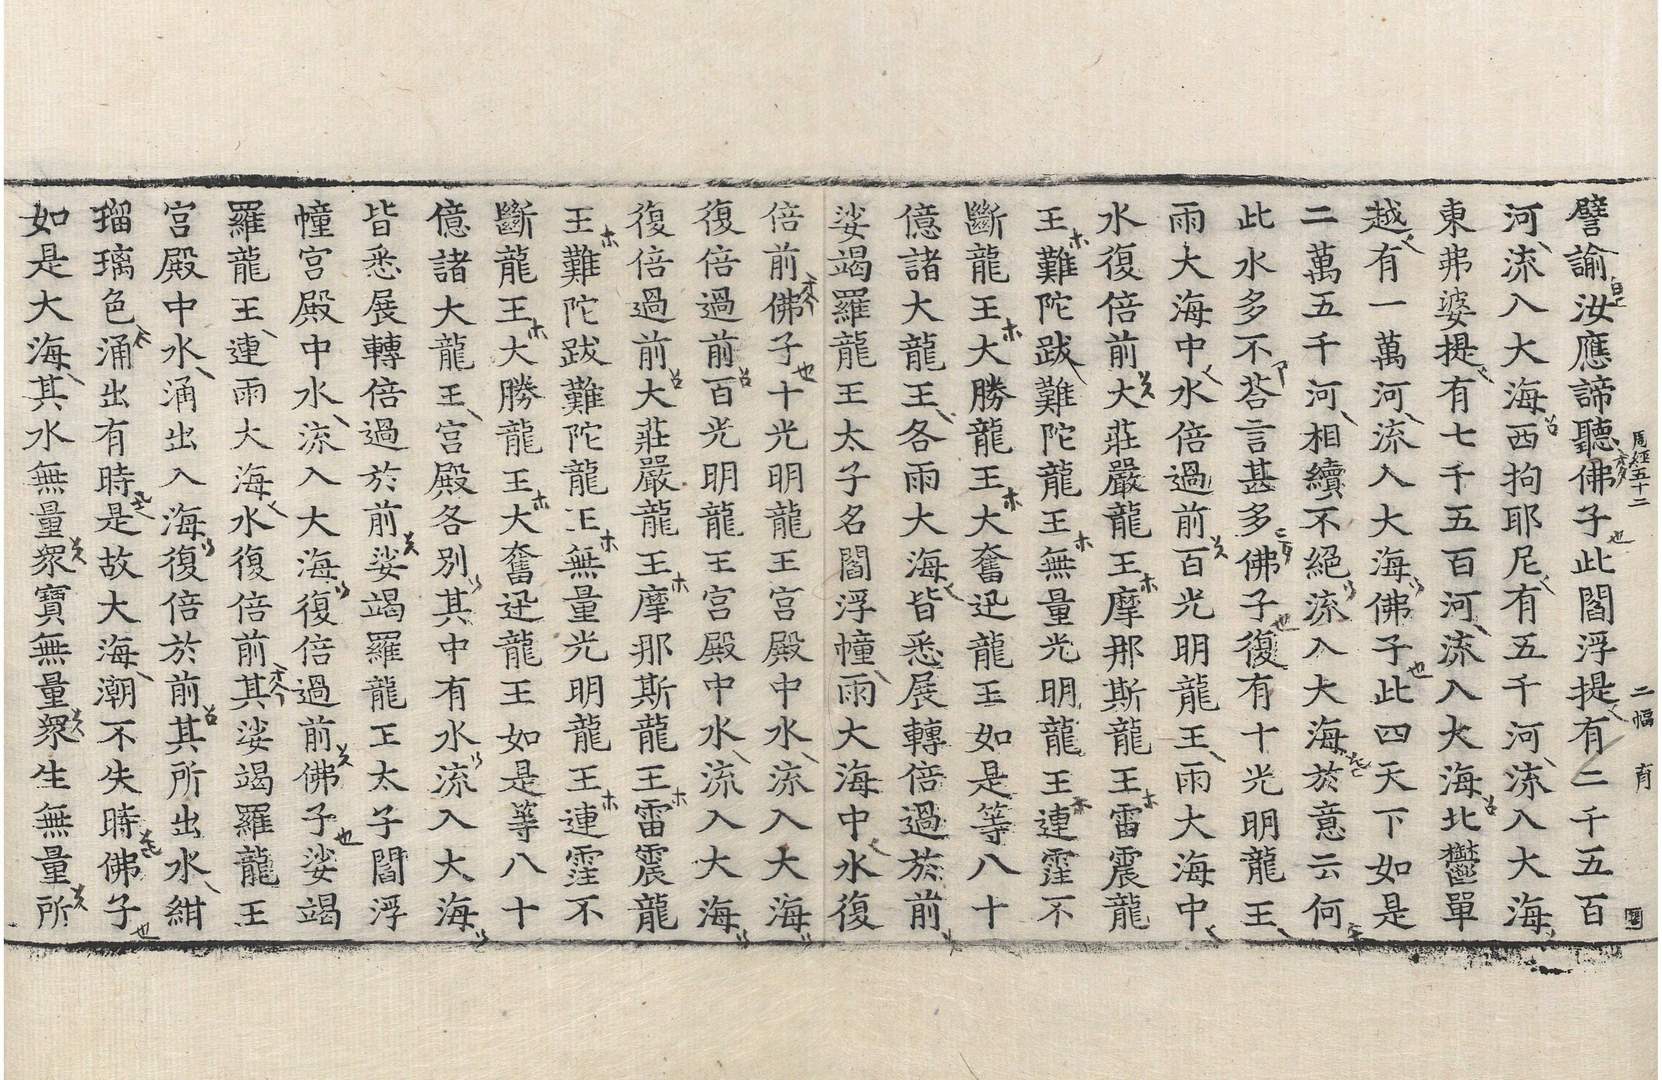 周經五十二 二幅 育 圜
譬諭汝應諦聽佛子此閻浮提有二千五百
河流入大海西拘耶尼有五千河流入大海
東弗婆提有七千五百河流入大海北鬱單
越有一萬河流入大海佛子此四天下如是
二萬五千河相續不絕流入大海於意云何
此水多不荅言甚多佛子復有十光明龍王
雨大海中水倍過前百光明龍王雨大海中
水復倍前大莊嚴龍王摩那斯龍王雷震龍
王難陀跋難陀龍王無量光明龍王連霔不
斷龍王大勝龍王大奮迅龍王如是等八十
億諸大龍王各雨大海皆悉展轉倍過於前
娑竭羅龍王太子名閻浮幢雨大海中水復
倍前佛子十光明龍王宮殿中水流入大海
復倍過前百光明龍王宮殿中水流入大海
復倍過前大莊嚴龍王摩那斯龍王雷震龍
王難陀跋難陀龍王無量光明龍王連霔不
斷龍王大勝龍王大奮迅龍王如是等八十
億諸大龍王宮殿各別其中有水流入大海
皆悉展轉倍過於前娑竭羅龍王太子閻浮
幢宮殿中水流入大海復倍過前佛子娑竭
羅龍王連雨大海水復倍前其娑竭羅龍王
宮殿中水涌出入海復倍於前其所出水紺
瑠璃色涌出有時是故大海潮不失時佛子
如是大海其水無量眾寶無量眾生無量所